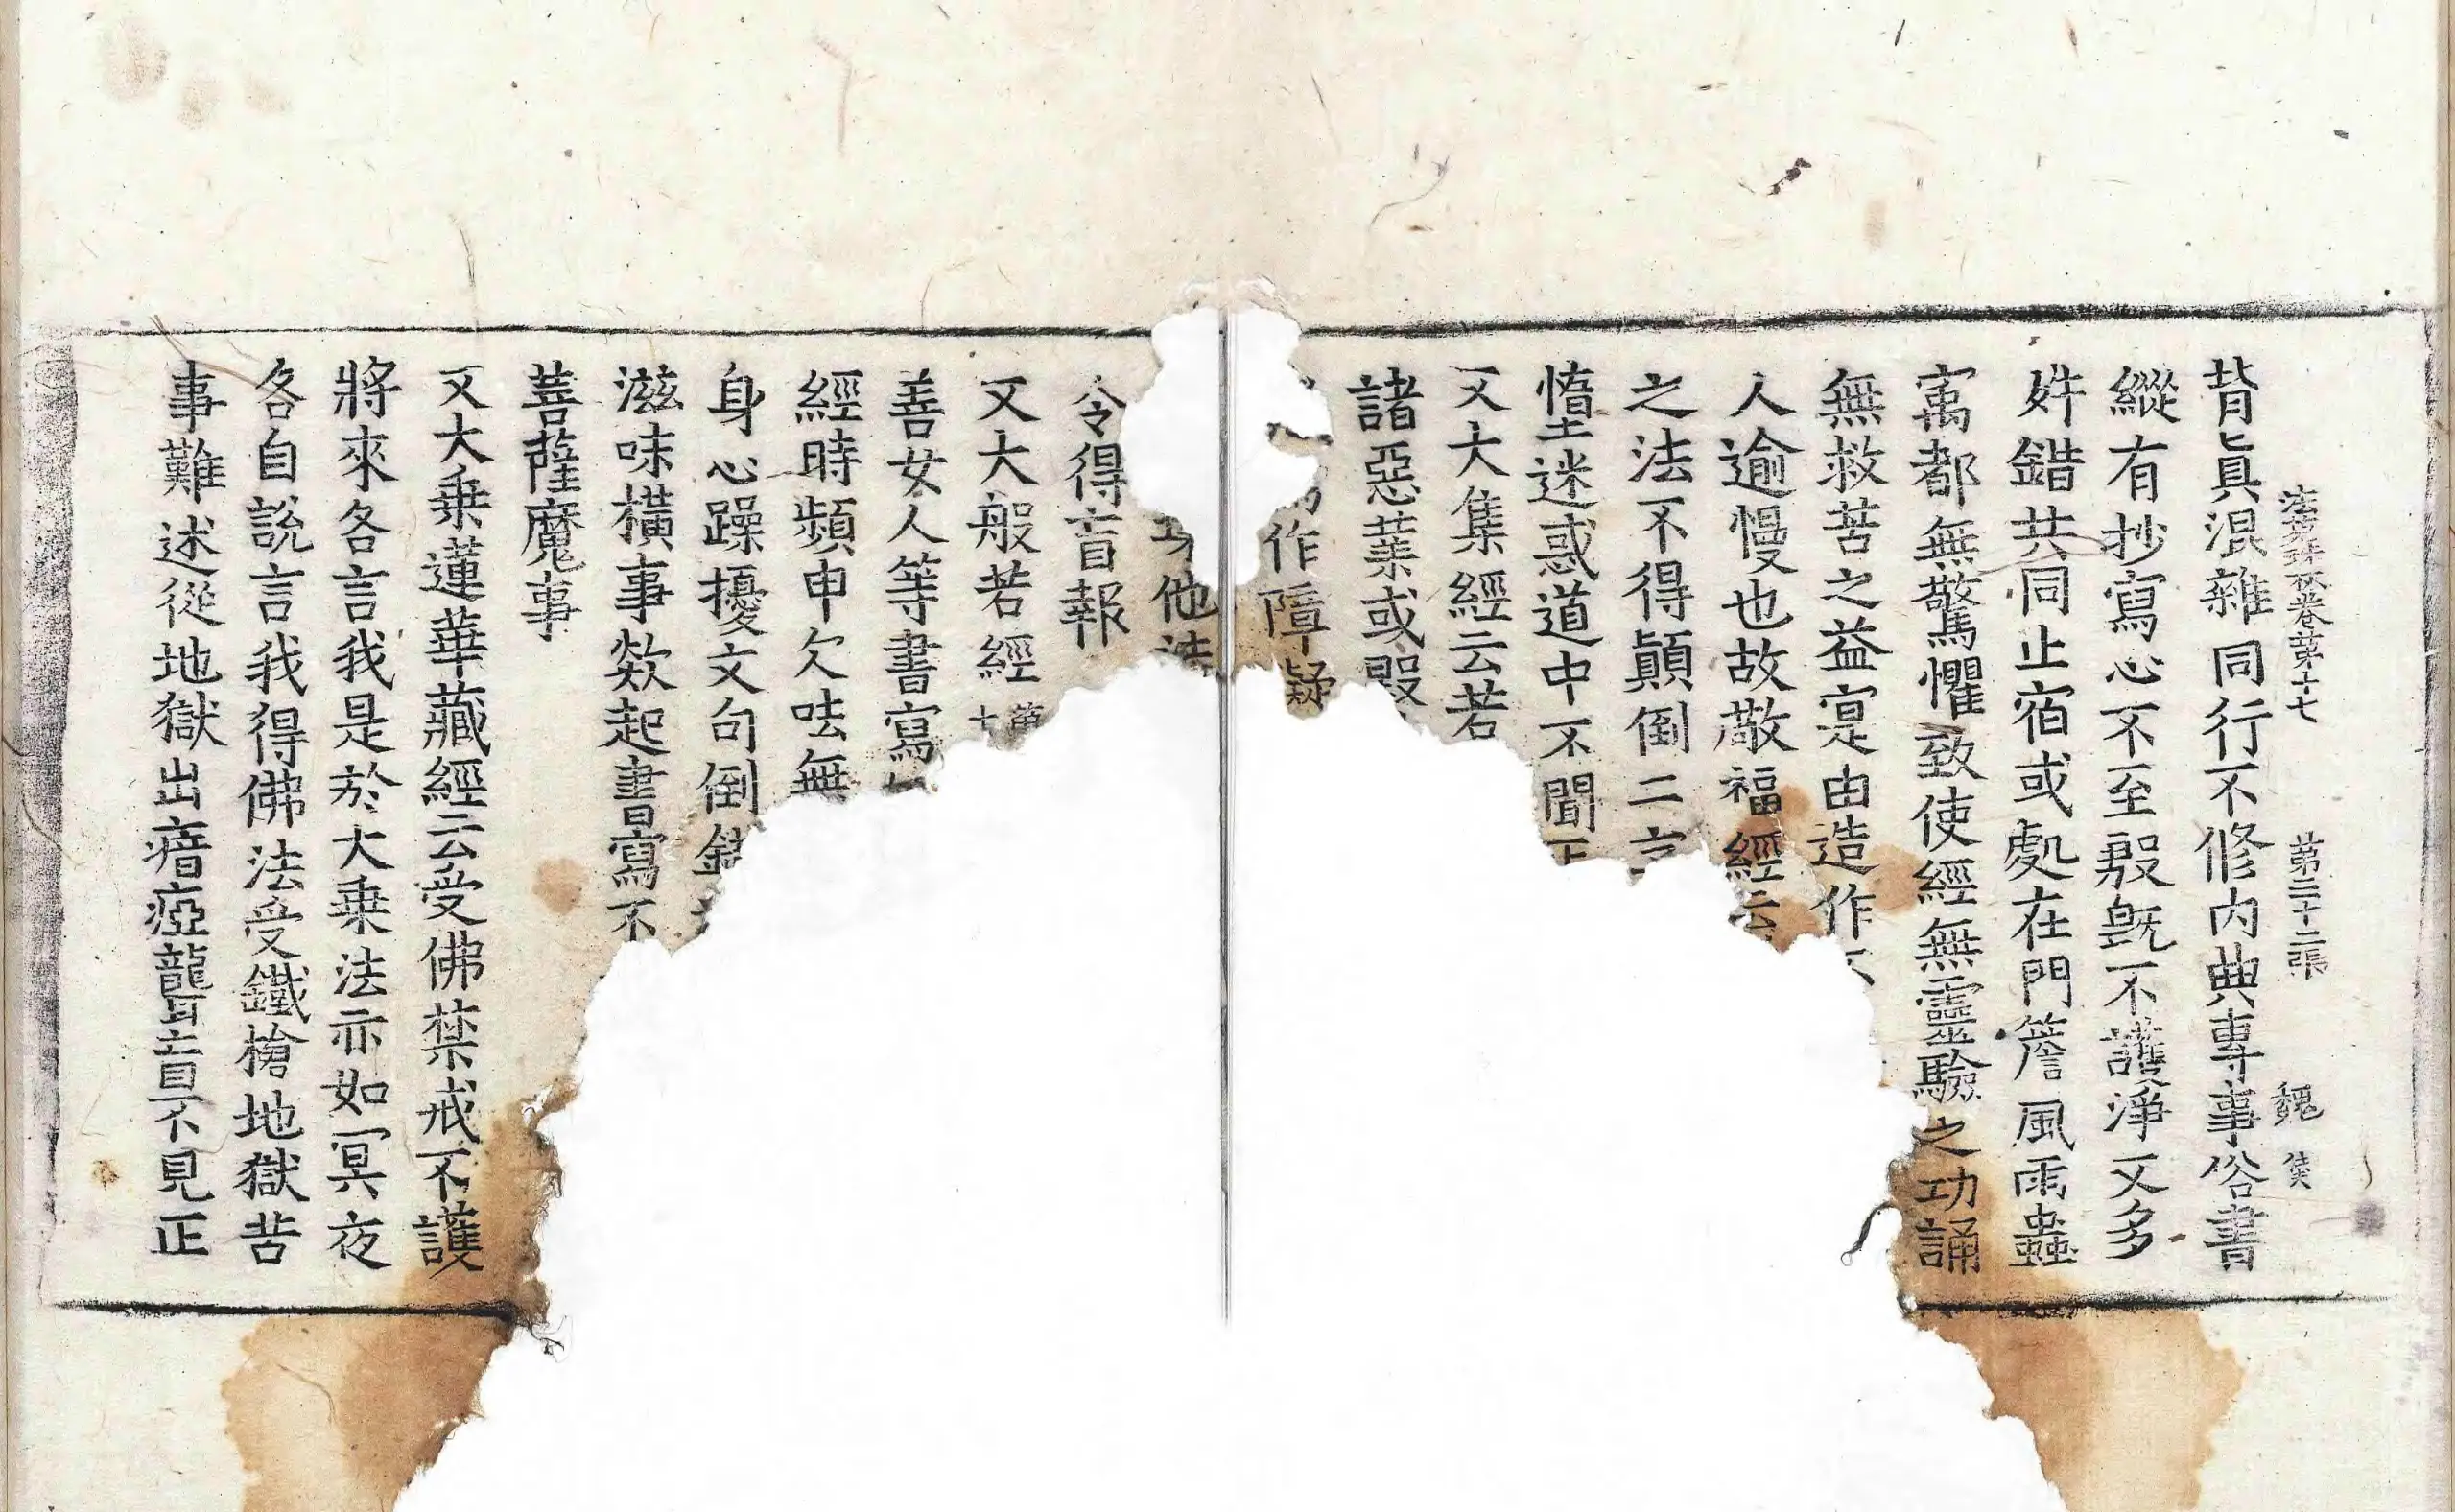 法苑珠林卷第十七 第二十二張 魏 侯
背真混雜同行不修內典專事俗書
縱有抄寫心不至殷旣不護淨又多
姧錯共同止宿或處在門簷風雨蟲
㝢都無驚懼致使經無靈驗之功誦
無救苦之益寔由造作不
人逾慢也故敬福經云
之法不得顛倒二字
墮迷惑道中不聞正
又大集經云若
諸惡業或毀
作障礙
他法
令得盲報
又大般若經 第十
善女人等書寫
經時頻申欠呿無
身心躁擾文句倒錯
滋味橫事欻起書寫不
菩薩魔事
又大乗蓮華藏經云受佛禁戒不護
將來各言我是於大乗法亦如冥夜
各自說言我得佛法受鐵槍地獄苦
事難述從地獄出瘖瘂聾盲不見正